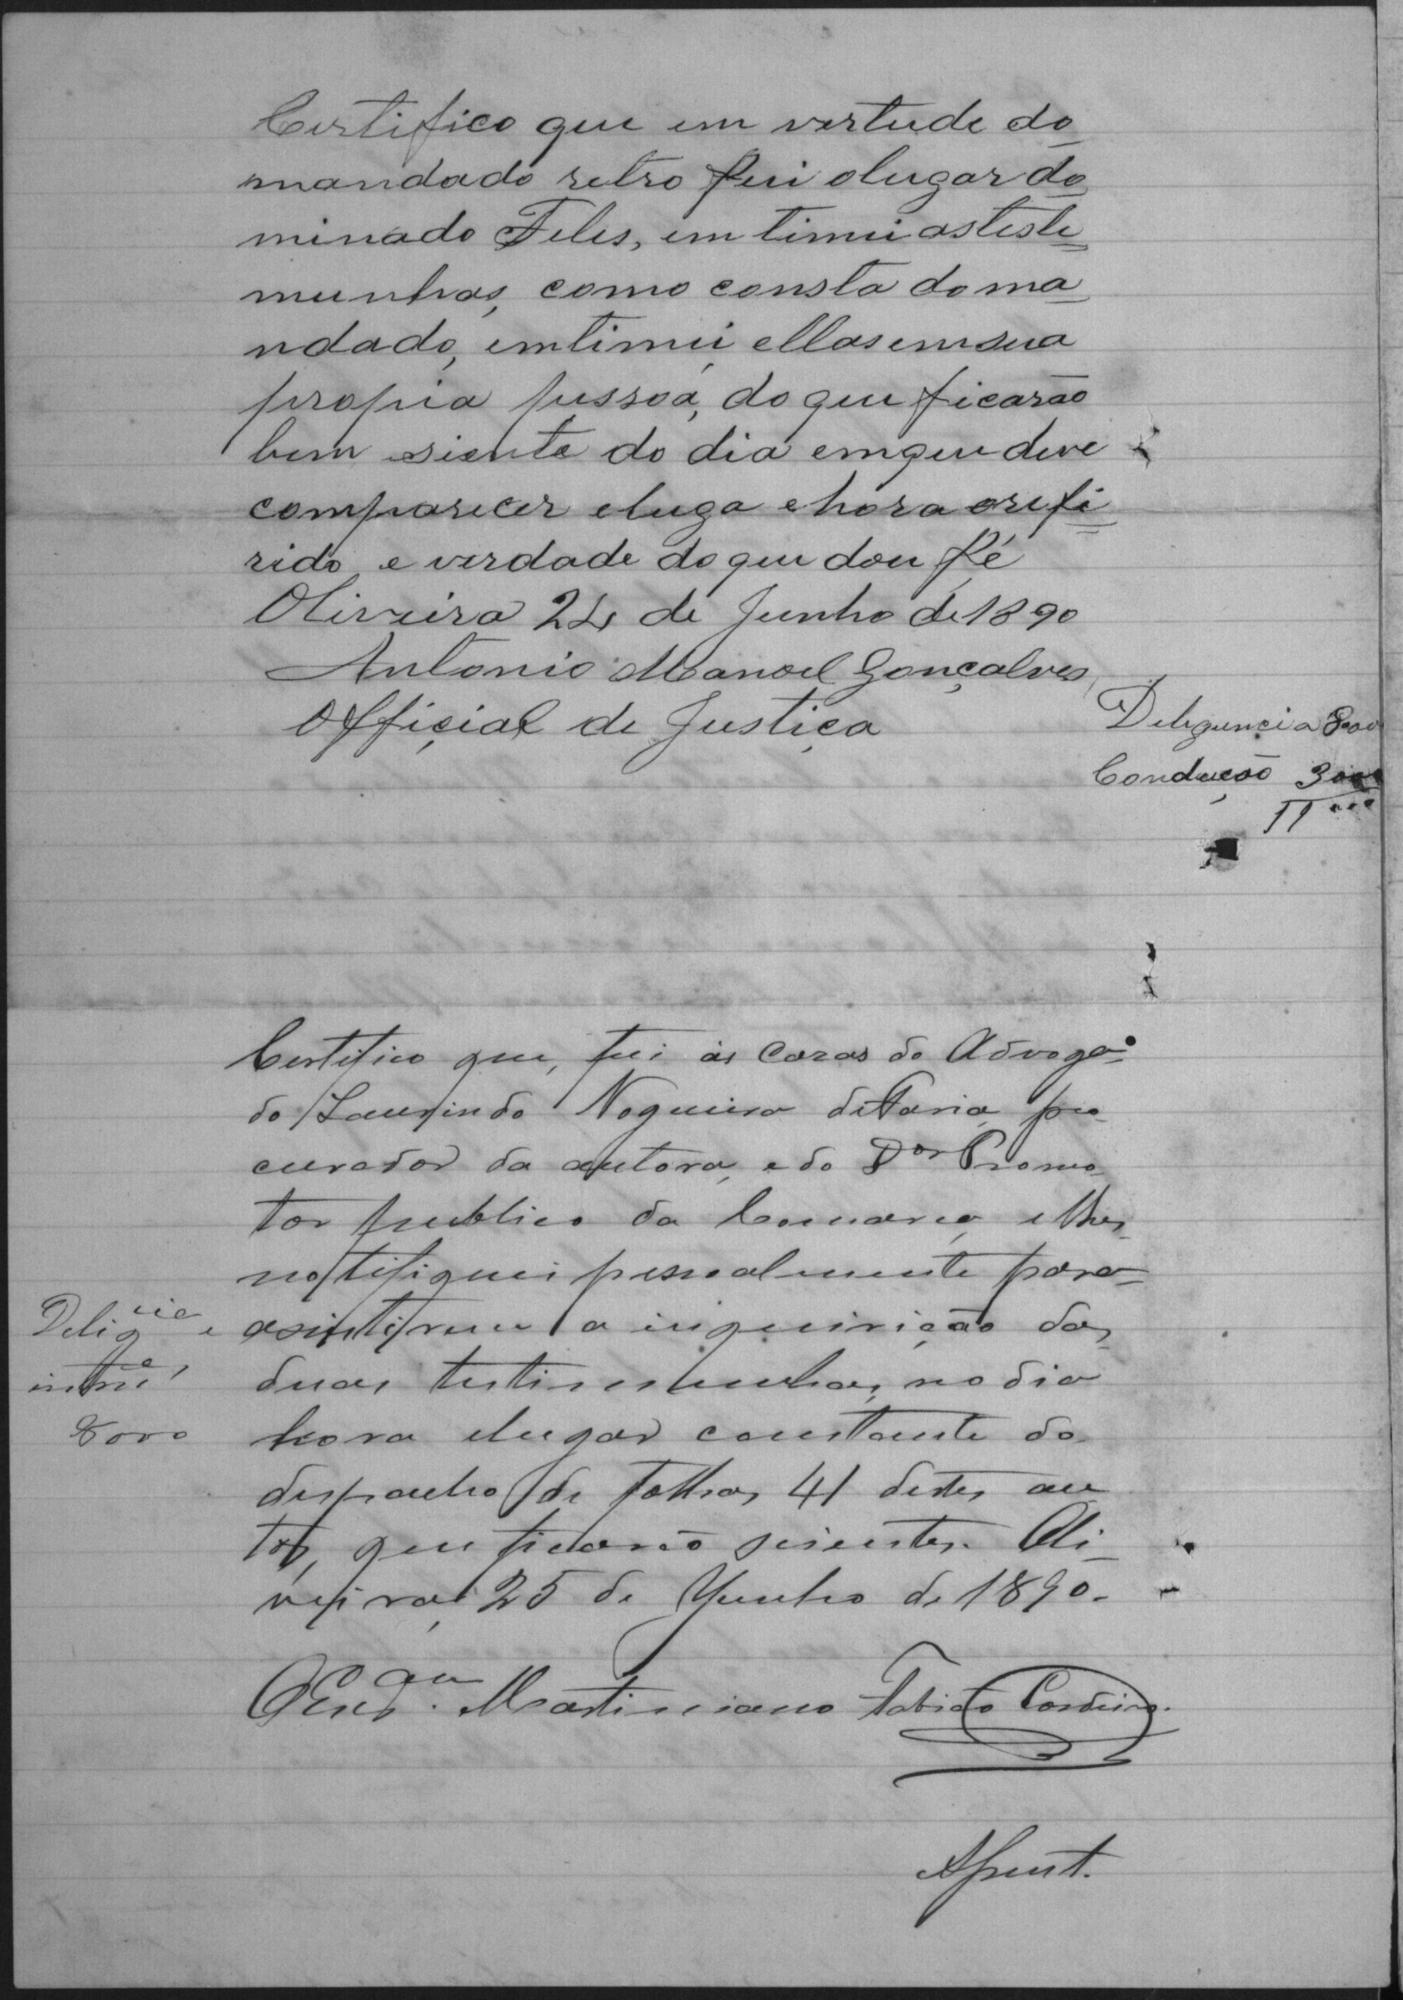 Certifico que em vertude do
mandado retro fui olugar do
minado Feles, em timei asteste
munhas, como consta doma
ndado, emtimei ellasemsua
propia pessoa, doque ficarão
bem siente do dia emque deve
comparecer eluga ehora orefi
rido, e verdade doque dou fé
Oliveira 24 de Junho de 1890
Antonio Manoel Gonçalves
Official de Justiça
Deleguencia 8000
Condução 3000
11000
Certifico que, fui ás cazas do Advoga
do Laurindo Nogueira deFaria, pro
curador da autora, e do Dor Promo
tor publico da Comarca, elhes
notifiquei pessoalmente para
asistirem a inquirição das
duas testimunhas, no dia
hora elugar constante do
despacho de folhas 41 destes au
tos, que ficarão scientes. Oli
veira, 25 de Junho de 1890.
Deligcia e
8000
OEscram. Martiniano Fabião Cordeiro.